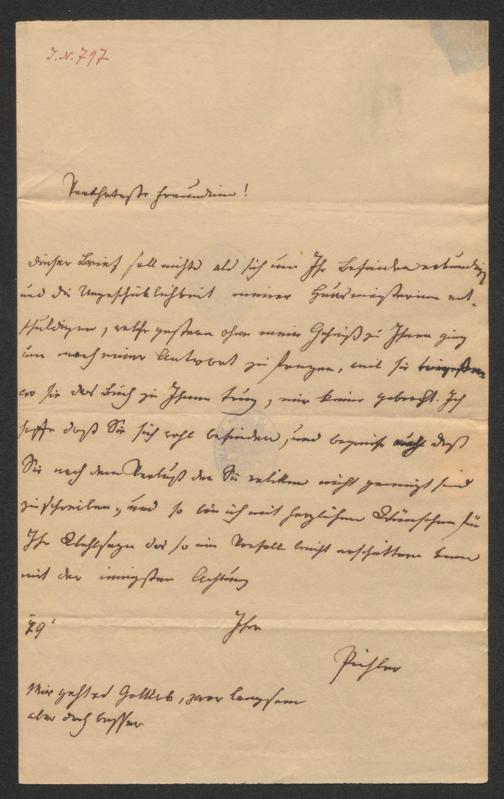 I.N. 797
Verehrteste Freundin!
Dieser Brief soll nichts als sich um Ihr Befinden erkundigen
und die Ungeschicklichkeit meiner Hausmeisterinn ent-
schuldigen, welche gestern ohne mein Geheiß zu Ihnen ging
um nach einer Antwort zu fragen, weil sie
wo sie das Buch zu Ihnen trug, mir keine gebracht. Ich
hoffe daß Sie sich wohl befinden, und begreife auch daß
Sie nach dem Verlust den Sie erlitten nicht geneigt sind
zu schreiben, und so bin ich mit herzlichen Wünschen für
Ihr Wohlseyn das so ein Vorfall leicht erschüttern kann
mit der innigsten Achtung
Ihre
Pichler
Mir geht es Gottlob, zwar langsam
aber doch besser